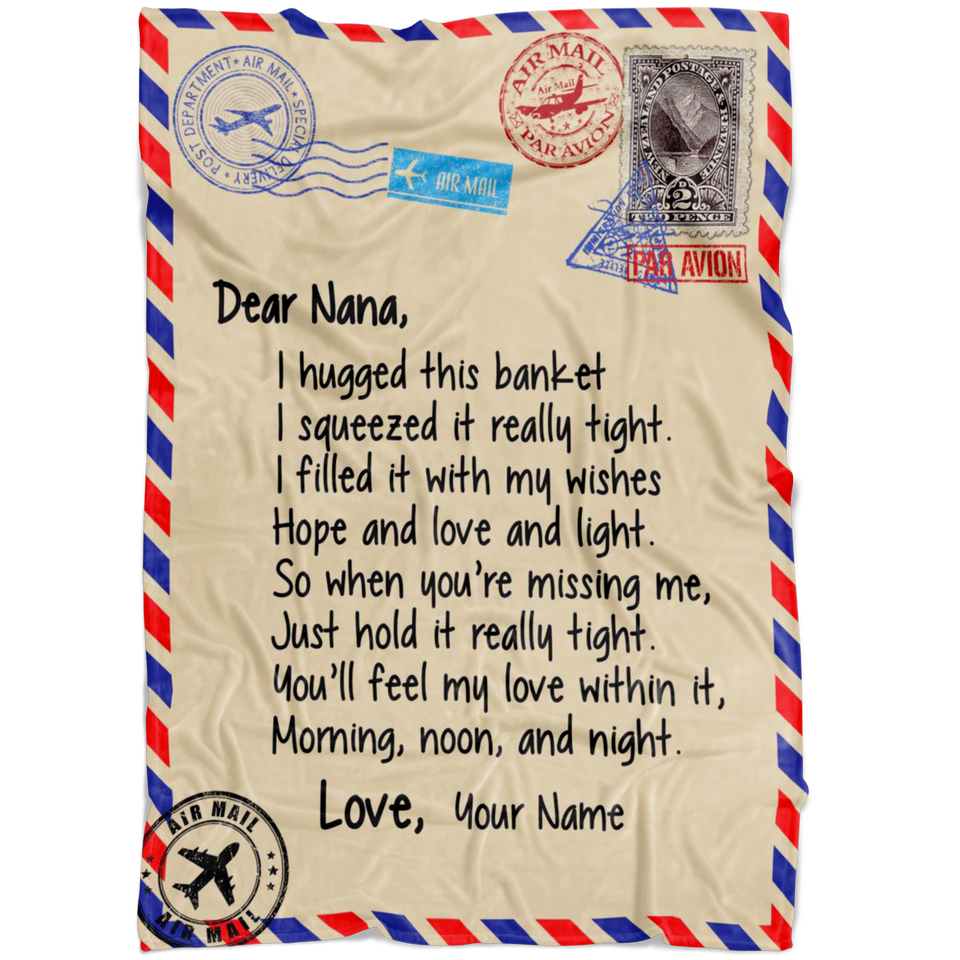 POST DEPARTMENT ★ AIR MAIL ★ SPECIAL DELIVERY ★
AIR MAIL
AIR MAIL
Air Mail
PAR AVION
NEW ZEALAND POSTAGE & REVENUE
2 D
TWO PENCE
PAR AVION
Dear Nana,
I hugged this banket
I squeezed it really tight.
I filled it with my wishes
Hope and love and light.
So when you're missing me,
Just hold it really tight.
You'll feel my love within it,
Morning, noon, and night.
Love, Your Name
AIR MAIL
AIR MAIL